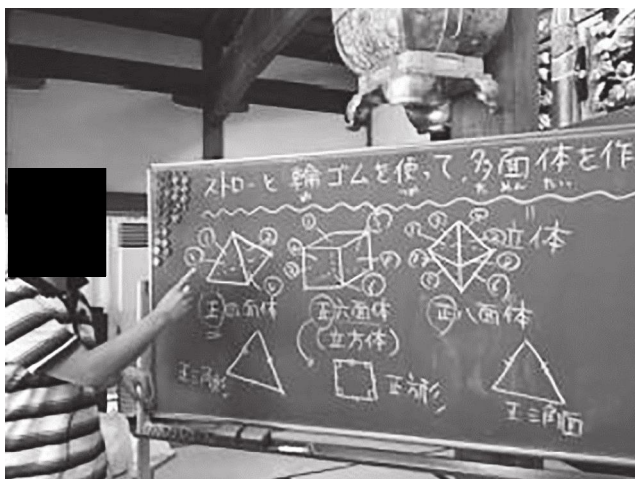 ストローと輪ゴムを使って、多面体を作
わ つか ため んたい
立体
正四面体
正六面体
正八面体
(立方体)
正三角形
正方形
正三角面